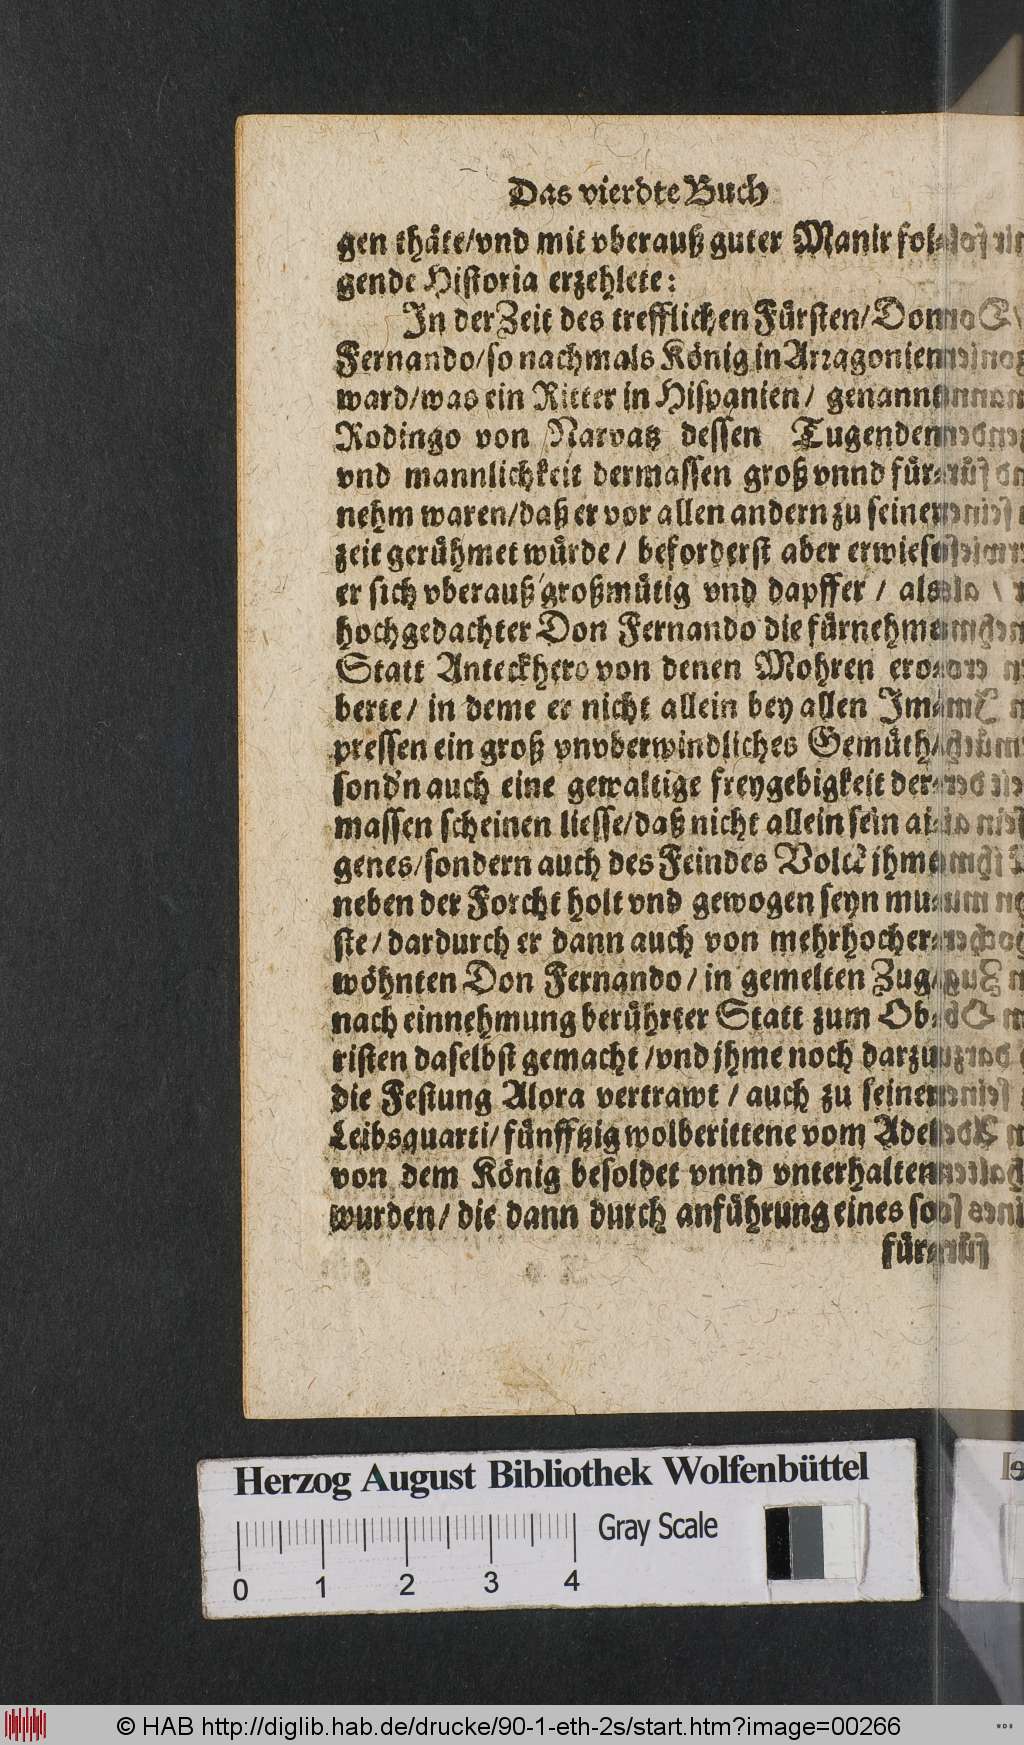 Das vierdte Buch
gen thäte/vnd mit vberauß guter Manir fol-
gende Historia erzehlete:
In der Zeit des trefflichen Fürsten/Don
Fernando/so nachmals König in Arragonien
ward/was ein Ritter in Hispanien/ genannt
Rodingo von Narvatz dessen Tugenden
vnd mannlichkeit dermassen groß vnnd für-
nehm waren/daß er vor allen andern zu seiner
zeit gerühmet würde/ beforderst aber erwiese
er sich vberauß großmütig vnd dapffer / als
hochgedachter Don Fernando die fürnehme
Statt Anteckhero von denen Mohren ero-
berte/ in deme er nicht allein bey allen Im-
pressen ein groß vnvberwindliches Gemüth/
sond'n auch eine gewaltige freygebigkeit der-
massen scheinen liesse/daß nicht allein sein ai-
genes/sondern auch des Feindes Volck jhme
neben der Forcht holt vnd gewogen seyn mu-
ste/dardurch er dann auch von mehrhocher-
wöhnten Don Fernando/ in gemelten Zug/
nach einnehmung berührter Statt zum Ob-
risten daselbst gemacht /vnd jhme noch darzu
die Festung Alora vertrawt / auch zu seiner
Leibsquarti/ fünfftzig wolberittene vom Adel
von dem König besoldet vnnd vnterhalten
wurden/ die dann durch anführung eines so
für-
Herzog August Bibliothek Wolfenbüttel
Gray Scale
0 1 2 3 4
© HAB http://diglib.hab.de/drucke/90-1-eth-2s/start.htm?image=00266